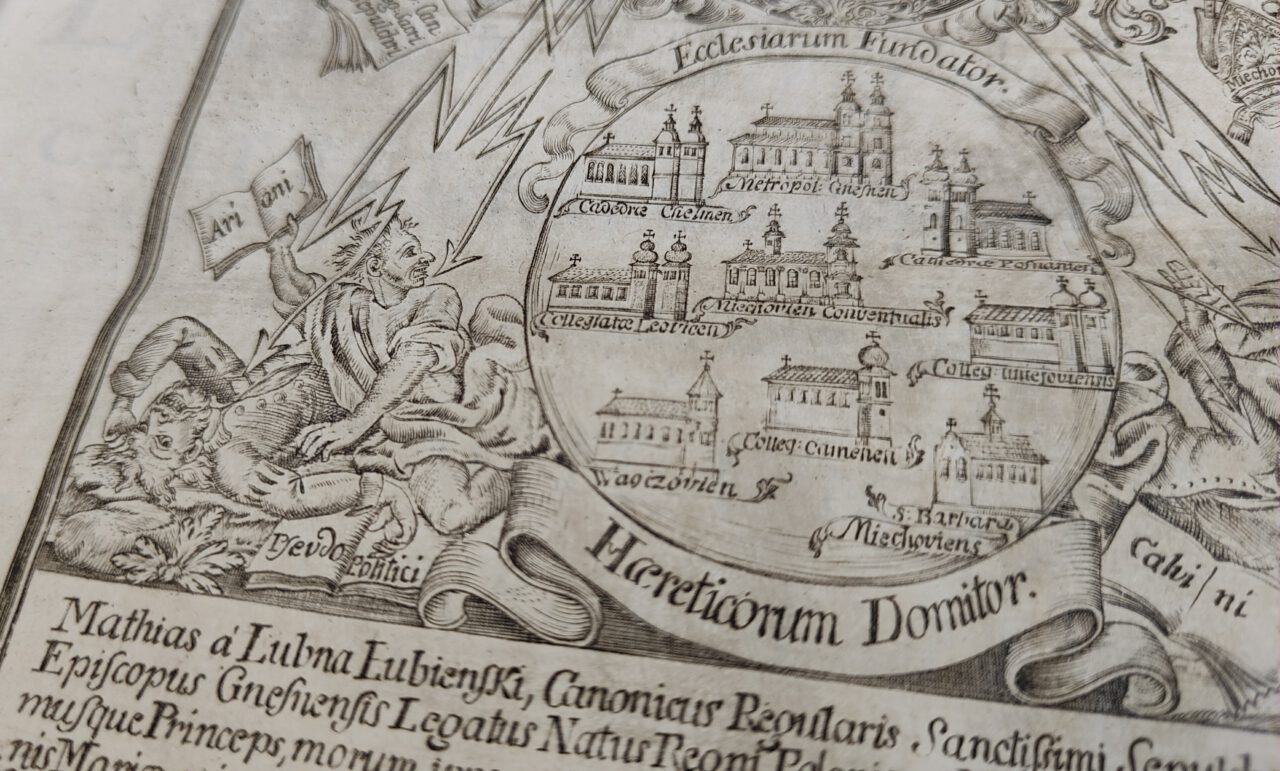 Ecclesiarum Fundator.
Metropol: Gnesnen
Cadedræ Chelmen
Catedræ Posnanien
Collegiatæ Leovicen
Miechovien Conventualis
Colleg: uniejoviensis
Colleg: Camenen
Wągczovien
S. Barbara
Miechoviens
Ari ani
Psevdo Politici
Calvi ni
Hæreticorum Domitor.
Mathias á Lubna Łubienſki, Canonicus Regularis Sanctiſsimi
Epiſcopus Gneſnenſis Legatus Natus Regni
muſque Princeps, morum